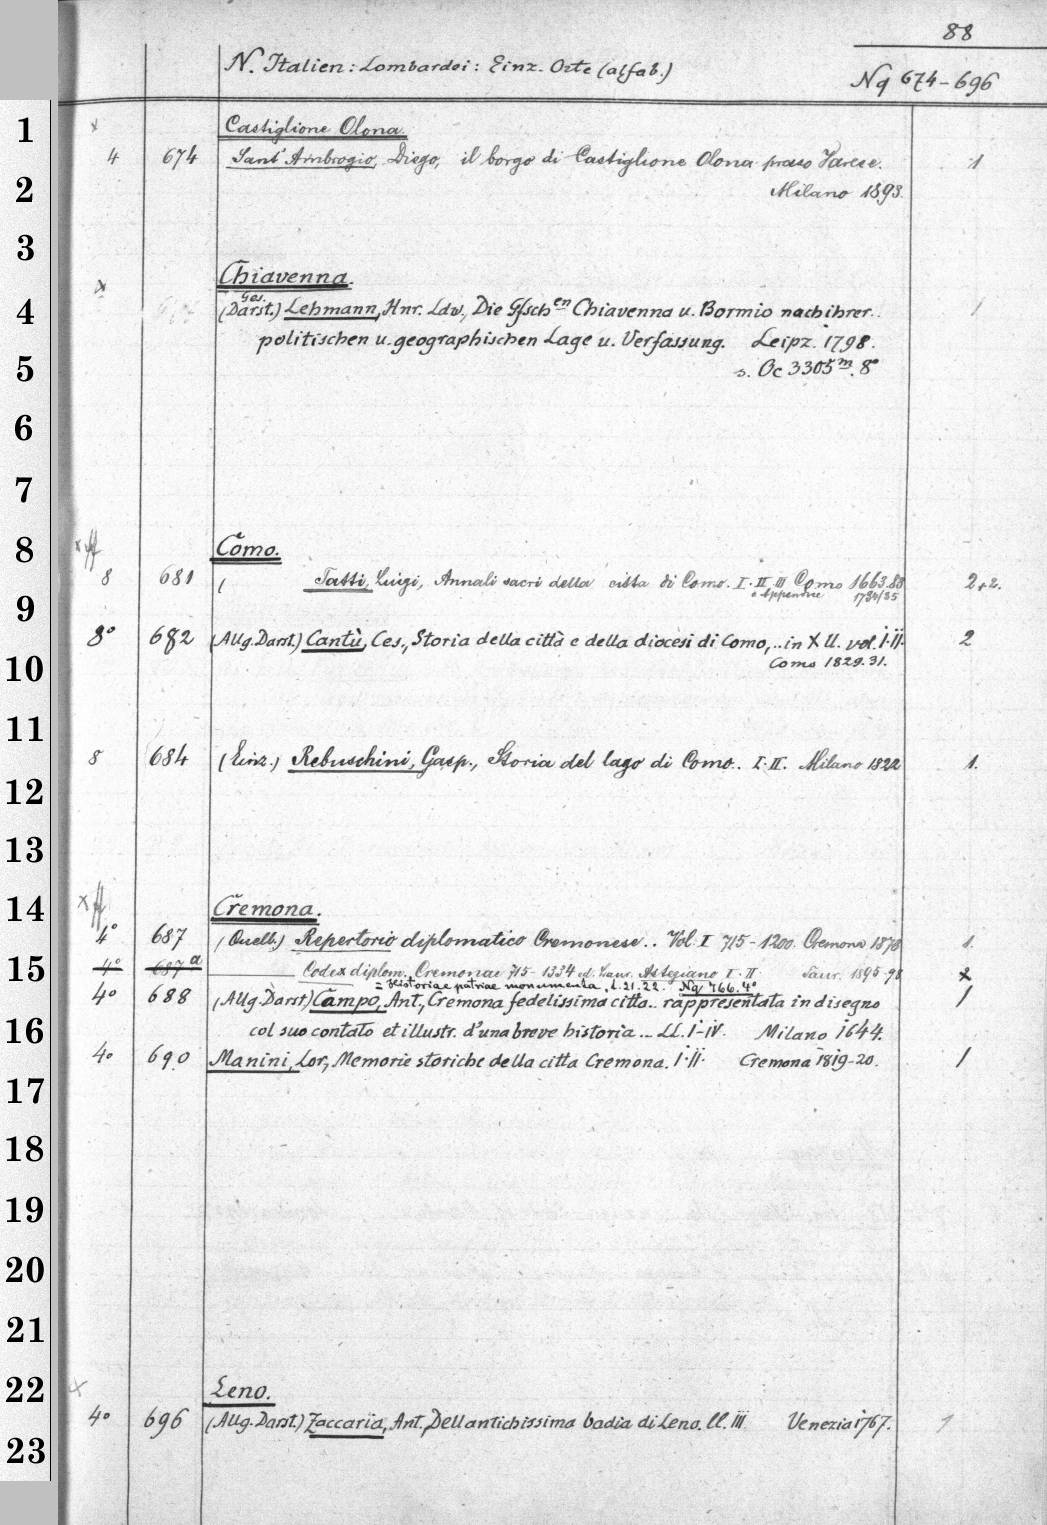 88
N. Italien: Lombardei: Einz. Orte (alfab.)
Nq 674-696
1
Castiglione Olona.
4 674 Sant' Ambrogio, Diego, il borgo di Castiglione Olona presso Varese. 1
2
Milano 1893.
3
Chiavenna.
Ges.
4
(Darst.) Lehmann, Hnr. Ldw., Die Gfsch en Chiavenna u. Bormio nach ihrer.. 1
politischen u. geographischen Lage u. Verfassung. Leipz. 1798.
5
s. Oc 3305 m. 8°
6
7
8
x ff Como.
8 681 ( Tatti, Luigi, Annali sacri della citta di Como. I. II. III Como 1663.83 2+2.
e Appendice 1734/35
9
8° 682 (Allg. Darst.) Cantù, Ces., Storia della città e della diocesi di Como, .. in X ll. vol. I-II. 2
Como 1829.31.
10
11
8 684 (Einz.) Rebuschini, Gasp., Storia del lago di Como.. I. II. Milano 1822 1.
12
13
14
x ff Cremona.
4° 687 (Quellb.) Repertorio diplomatico Cremonese.. Vol. I 715-1200. Cremona 1878 1.
15
4° 687 a Codex diplom. Cremonae 715-1334 ed. Laur. Astegiano I. II. Taur. 1895-98 2
= Historiae patriae monumenta. t. 21. 22. Nq 766. 4°
4° 688 (Allg. Darst) Campo, Ant., Cremona fedelissima citta.. rappresentata in disegno 1
16
col suo contato et illustr. d'una breve historia ... LL. I-IV. Milano 1644.
4° 690 Manini, Lor., Memorie storiche della citta Cremona. I. II. Cremona 1819-20. 1
17
18
19
20
21
22
x Leno.
4° 696 (Allg. Darst.) Zaccaria, Ant., Dell antichissima badia di Leno. ll. III. Venezia 1767. 1
23